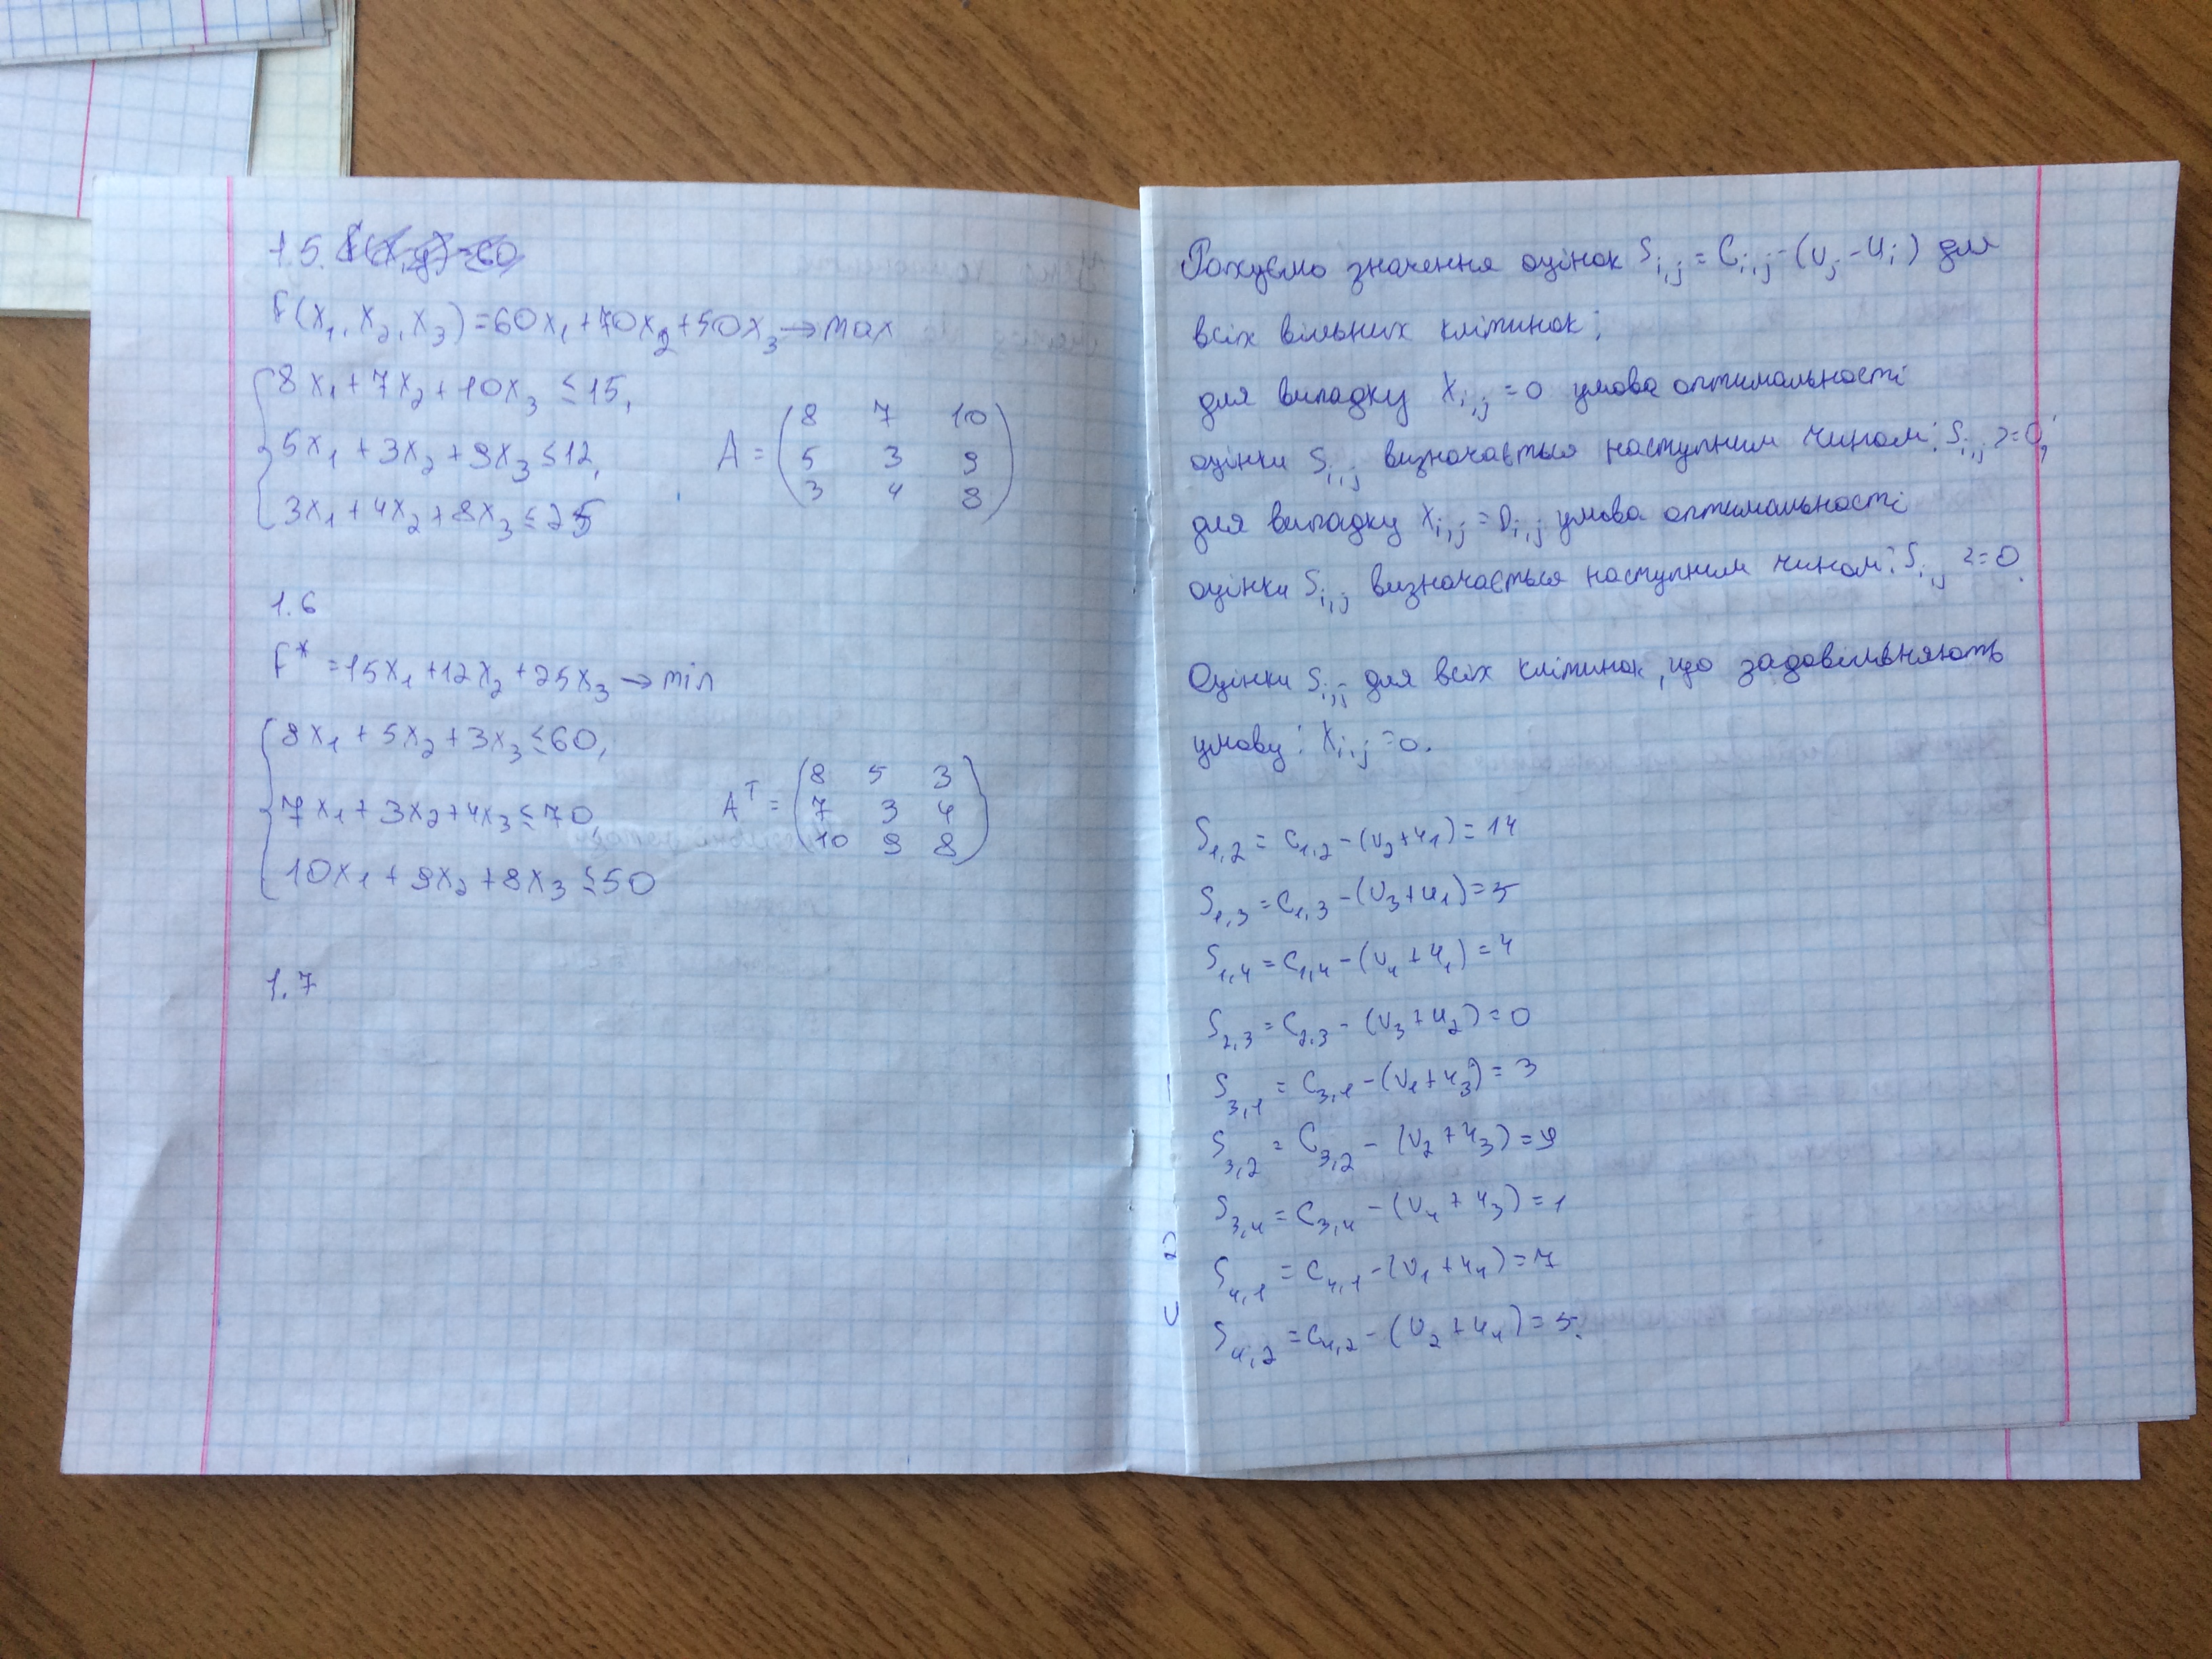 1.5.
F(x₁, x₂, x₃) = 60x₁ + 70x₂ + 50x₃ → max
8x₁ + 7x₂ + 10x₃ ≤ 15,
5x₁ + 3x₂ + 9x₃ ≤ 12,
3x₁ + 4x₂ + 8x₃ ≤ 25
A = ( 8 7 10
5 3 9
3 4 8 )
1.6
F* = 15x₁ + 12x₂ + 25x₃ → min
8x₁ + 5x₂ + 3x₃ ≤ 60,
7x₁ + 3x₂ + 4x₃ ≤ 70,
10x₁ + 9x₂ + 8x₃ ≤ 50
Aᵀ = ( 8 5 3
7 3 4
10 9 8 )
1.7
Рахуємо значення оцінок S i,j = C i,j - (υ j - u i) для
всіх вільних клітинок:
для випадку X i,j = 0 умова оптимальності
оцінки S i,j визначається наступним чином: S i,j >= 0;
для випадку X i,j = D i,j умова оптимальності
оцінки S i,j визначається наступним чином: S i,j <= 0.
Оцінки S i,j для всіх клітинок, що задовільняють
умову: X i,j = 0.
S 1,2 = C 1,2 - (υ₂ + u₁) = 14
S 1,3 = C 1,3 - (υ₃ + u₁) = 5
S 1,4 = C 1,4 - (υ₄ + u₁) = 4
S 2,3 = C 2,3 - (υ₃ + u₂) = 0
S 3,1 = C 3,1 - (υ₁ + u₃) = 3
S 3,2 = C 3,2 - (υ₂ + u₃) = 9
S 3,4 = C 3,4 - (υ₄ + u₃) = 1
S 4,1 = C 4,1 - (υ₁ + u₄) = 7
S 4,2 = C 4,2 - (υ₂ + u₄) = 5.